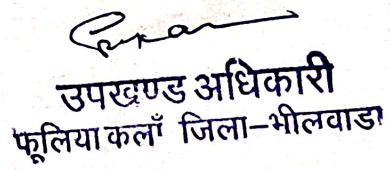 उपखण्ड अधिकारी
फूलिया कलाँ जिला-भीलवाडा